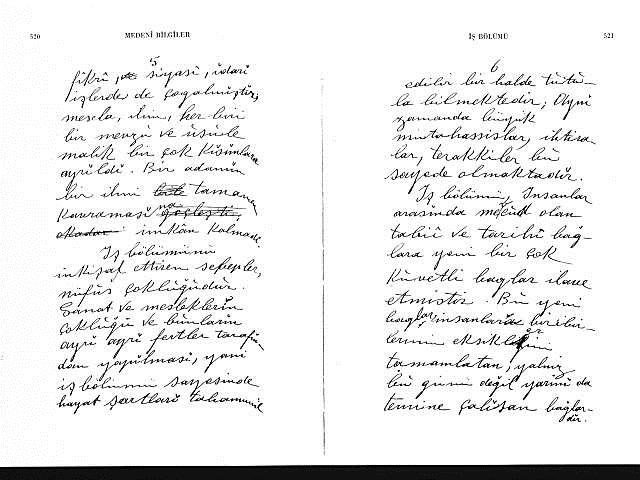 520 MEDENİ BİLGİLER
5
fikrî, siyasî, idarî
işlerde de çoğalmıştır;
mesela, ilim, her biri
bir mevzu ve usule
malik bir çok kısımlara
ayrıldı. Bir adamın
bir ilmi tamamen
kavraması na
imkân kalmadı.
İş bölümünü
inkişaf ettiren sebepler,
nüfus çokluğudur.
Sanat ve mesleklerin
çokluğu ve bunların
ayrı ayrı fertler tarafın-
dan yapılması, yani
iş bölümü sayesinde
hayat şartları tahammül
İŞ BÖLÜMÜ 521
6
edilir bir halde tutu-
la bilmektedir; Aynı
zamanda büyük
mütahassıslar, ihtira-
lar, terakkiler bu
sayede olmaktadır.
İş bölümü, İnsanlar
arasında mevcud olan
tabiî ve tarihî bağ-
lara yeni bir çok
kuvvetli baglar ilave
etmiştir. Bu yeni
baglar, insanların biribir-
lerinin eksiklerini
tamamlatan, yalnız
bu günü değil yarını da
temine çalışan bağlar-
dır.